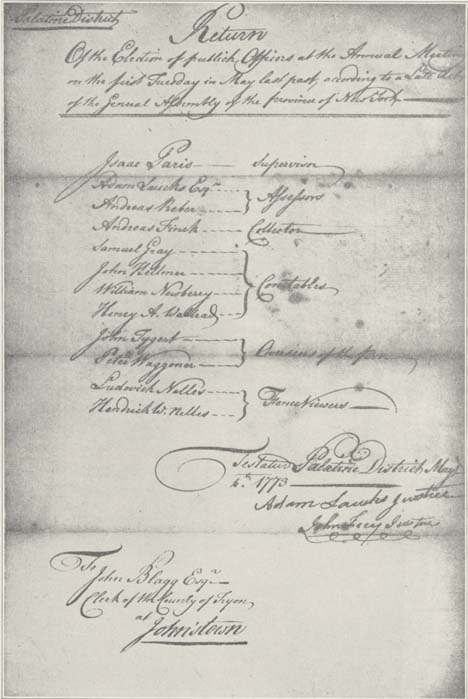 Palatine District
Return
Of the Election of publick Officers at the Annual Meeting
on the first Tuesday in May last past, according to a Late Act
of the General Assembly of the province of New York
Isaac Paris Supervisor
Adam Laucks Esqr
Andreas Reber } Assessors
Andreas Finck Collector
Samuel Gray
John Hellmer
William Newberry } Constables
Henry A. Wallrad
John Tygert
Peter Waggoner } of the
Ludowick Nelles
Hendrick W. Nelles } Fence Viewers
Testatur Palatine District May
4th 1773
Adam Laucks Justice
John Frey Justice
To
John Blagg Esqr
Clerk of the County of Tryon
at
Johnstown